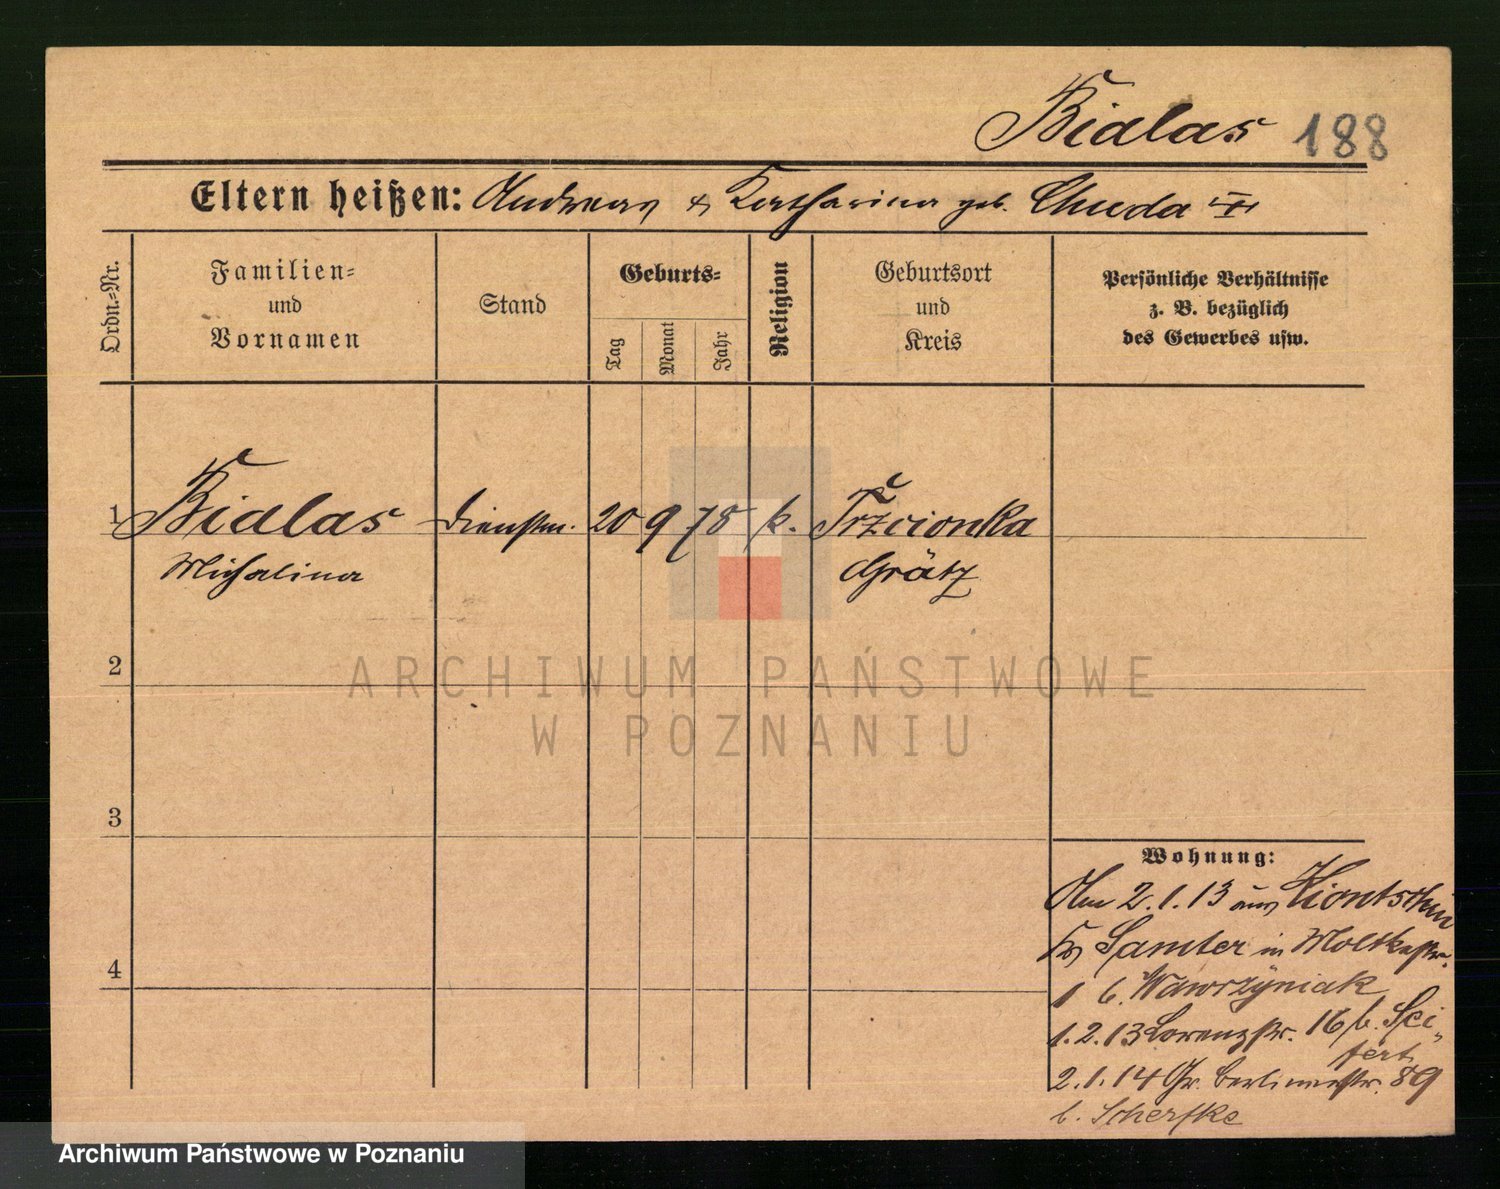 Bialas 188
Eltern heißen: Andreas & Katharina geb. Chuda
Ordn.=Nr.
Familien=
und
Vornamen
Stand
Geburts=
Tag
Monat
Jahr
Religion
Geburtsort
und
Kreis
Persönliche Verhältnisse
z. B. bezüglich
des Gewerbes usw.
1 Bialas Dienstm. 20 9 78 k. Trzcionka
Michalina Grätz
2
ARCHIWUM PAŃSTWOWE
W POZNANIU
3
4
Wohnung:
Am 2.1.13 aus Kiontschin
Kr Samter in Moltkestr.
1 b. Wawrzyniak
1.2.13 Lorenzstr. 16 b. Sei=
fert
2.1.14 Gr. Berlinerstr. 89
b. Scherfke
Archiwum Państwowe w Poznaniu